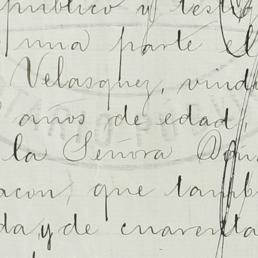 publico y testi
una parte el
Velasquez, vind
años de edad,
la Señora Doñ
acon, que tamb
da, y de cuarenta